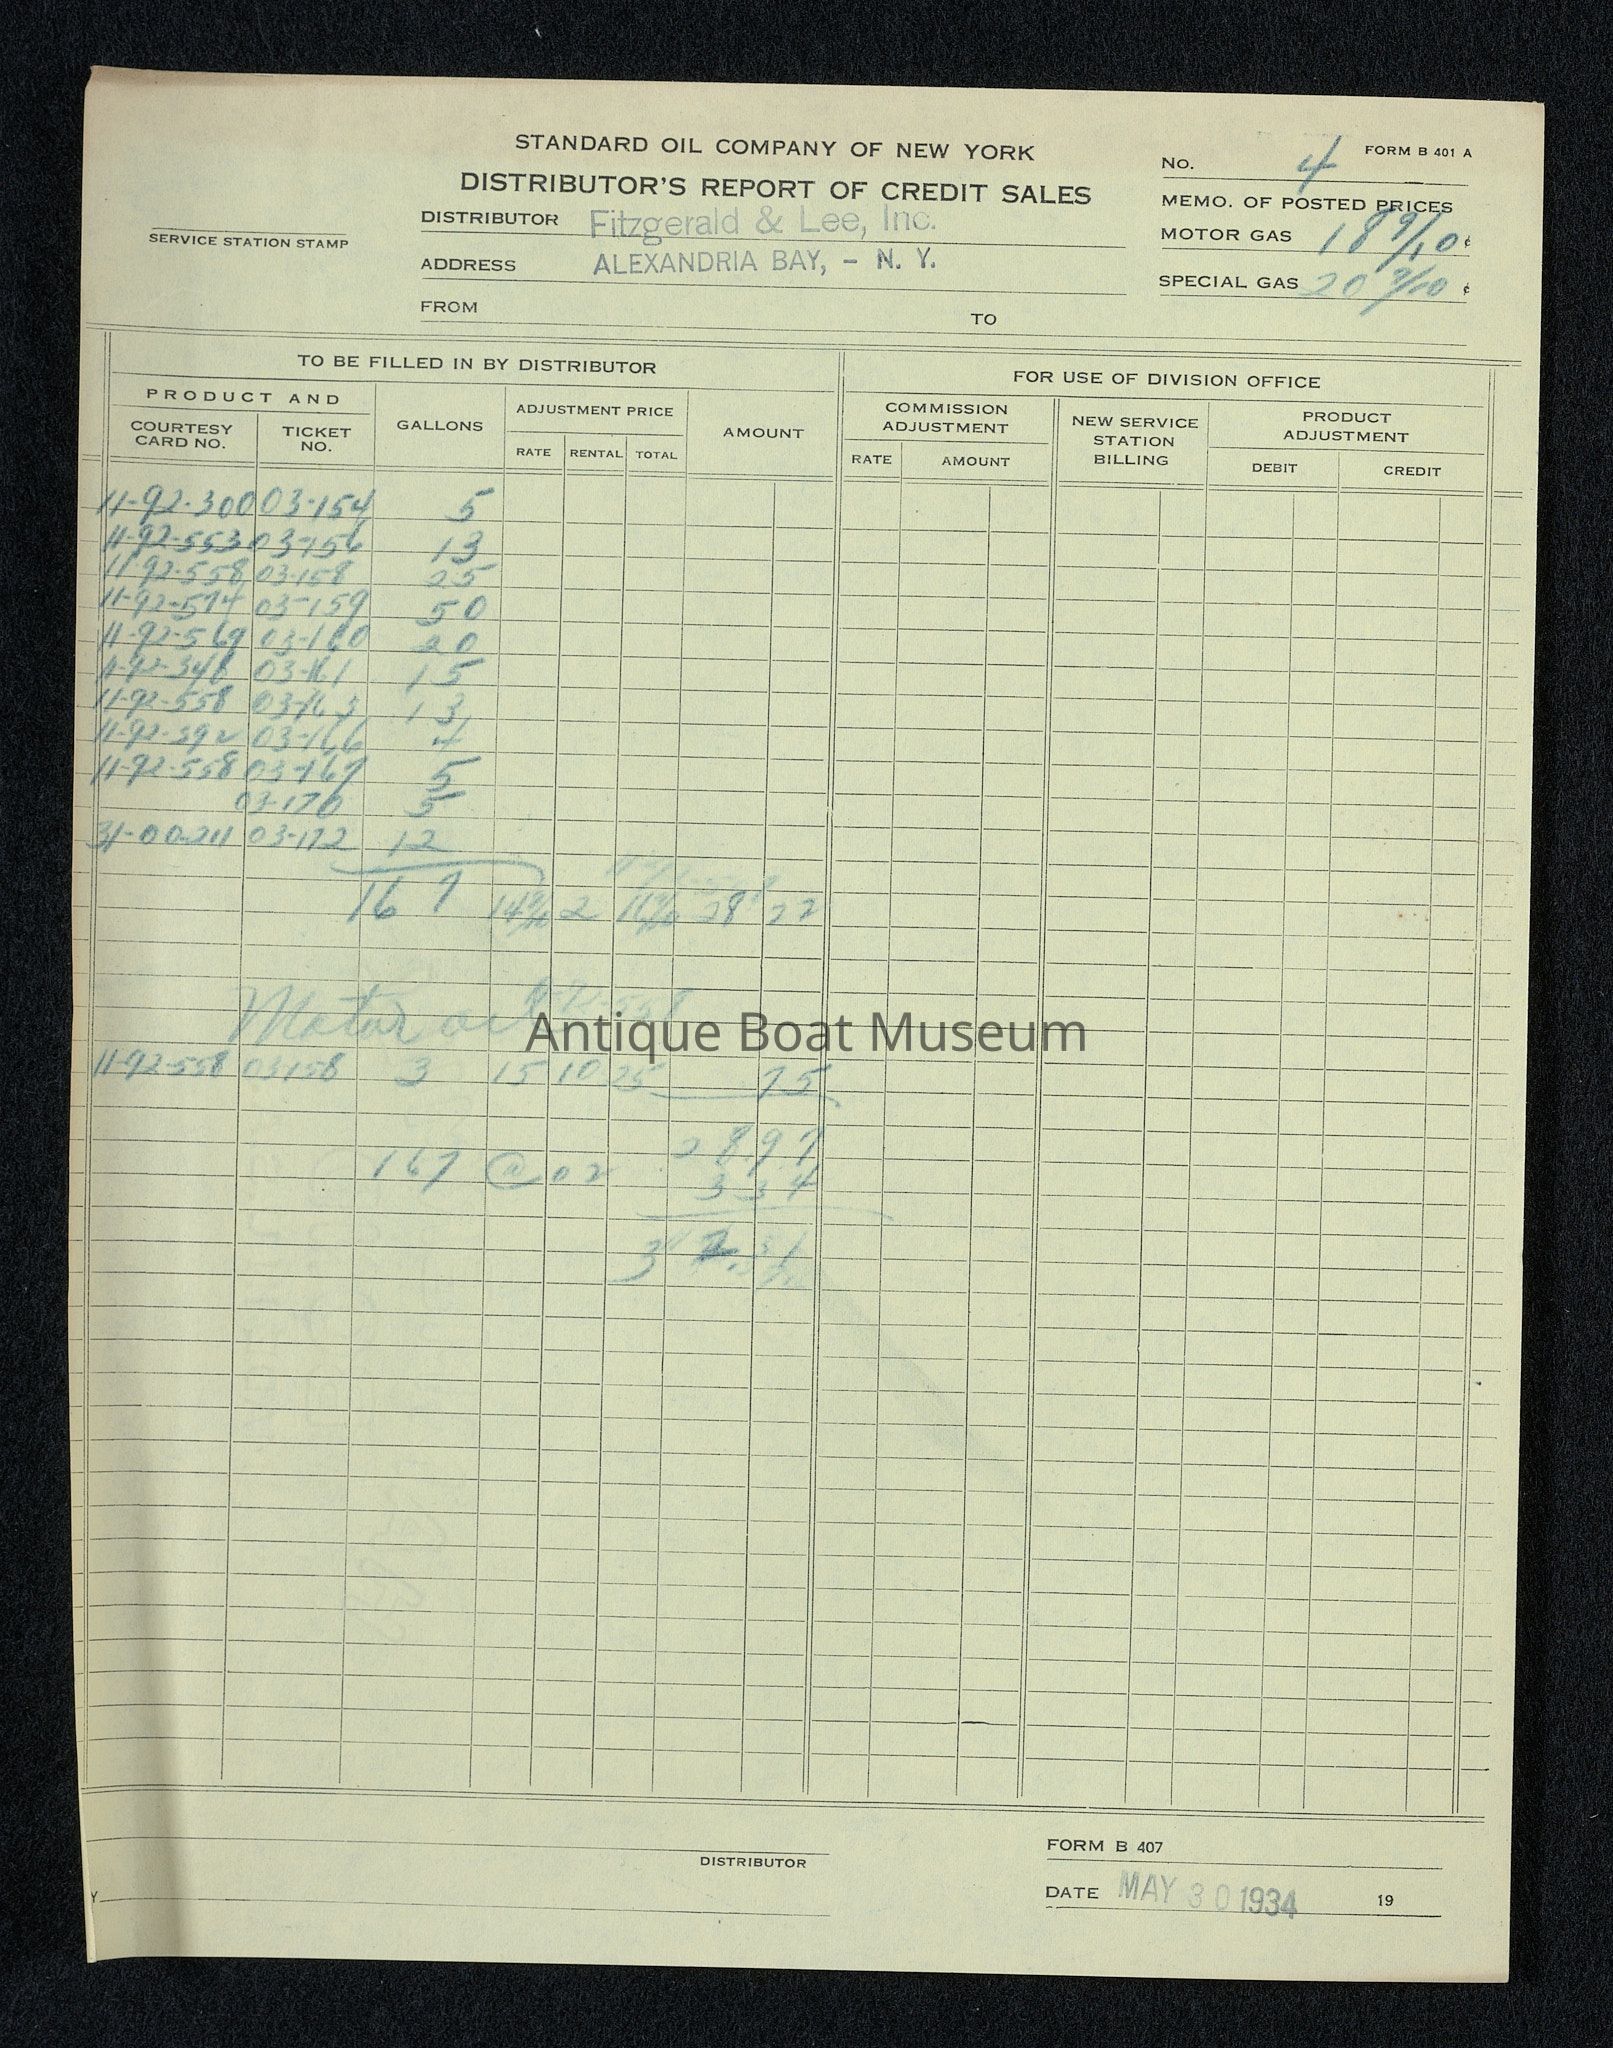 STANDARD OIL COMPANY OF NEW YORK
DISTRIBUTOR'S REPORT OF CREDIT SALES
FORM B 401 A
NO. 4
MEMO. OF POSTED PRICES
MOTOR GAS 18 9/10 ¢
SPECIAL GAS 20 9/10 ¢
SERVICE STATION STAMP
DISTRIBUTOR Fitzgerald & Lee, Inc.
ADDRESS ALEXANDRIA BAY, - N. Y.
FROM TO
TO BE FILLED IN BY DISTRIBUTOR FOR USE OF DIVISION OFFICE
PRODUCT AND
COURTESY CARD NO. TICKET NO. GALLONS ADJUSTMENT PRICE AMOUNT COMMISSION ADJUSTMENT NEW SERVICE STATION BILLING PRODUCT ADJUSTMENT
RATE RENTAL TOTAL RATE AMOUNT DEBIT CREDIT
11-92-300 03-154 5
11-92-553 03-156 13
11-92-558 03-158 25
11-92-574 03-159 50
11-92-569 03-160 20
11-92-348 03-161 15
11-92-558 03-163 13
11-92-392 03-166 4
11-92-558 03-167 5
03-170 5
31-00-211 03-172 12
167 14 9/10 2 16 9/10 28 22
Motor oil
Antique Boat Museum
11-92-558 03158 3 15 10 25 75
28.97
167 @ 02 3 34
3 31
DISTRIBUTOR
FORM B 407
DATE MAY 30 1934 19